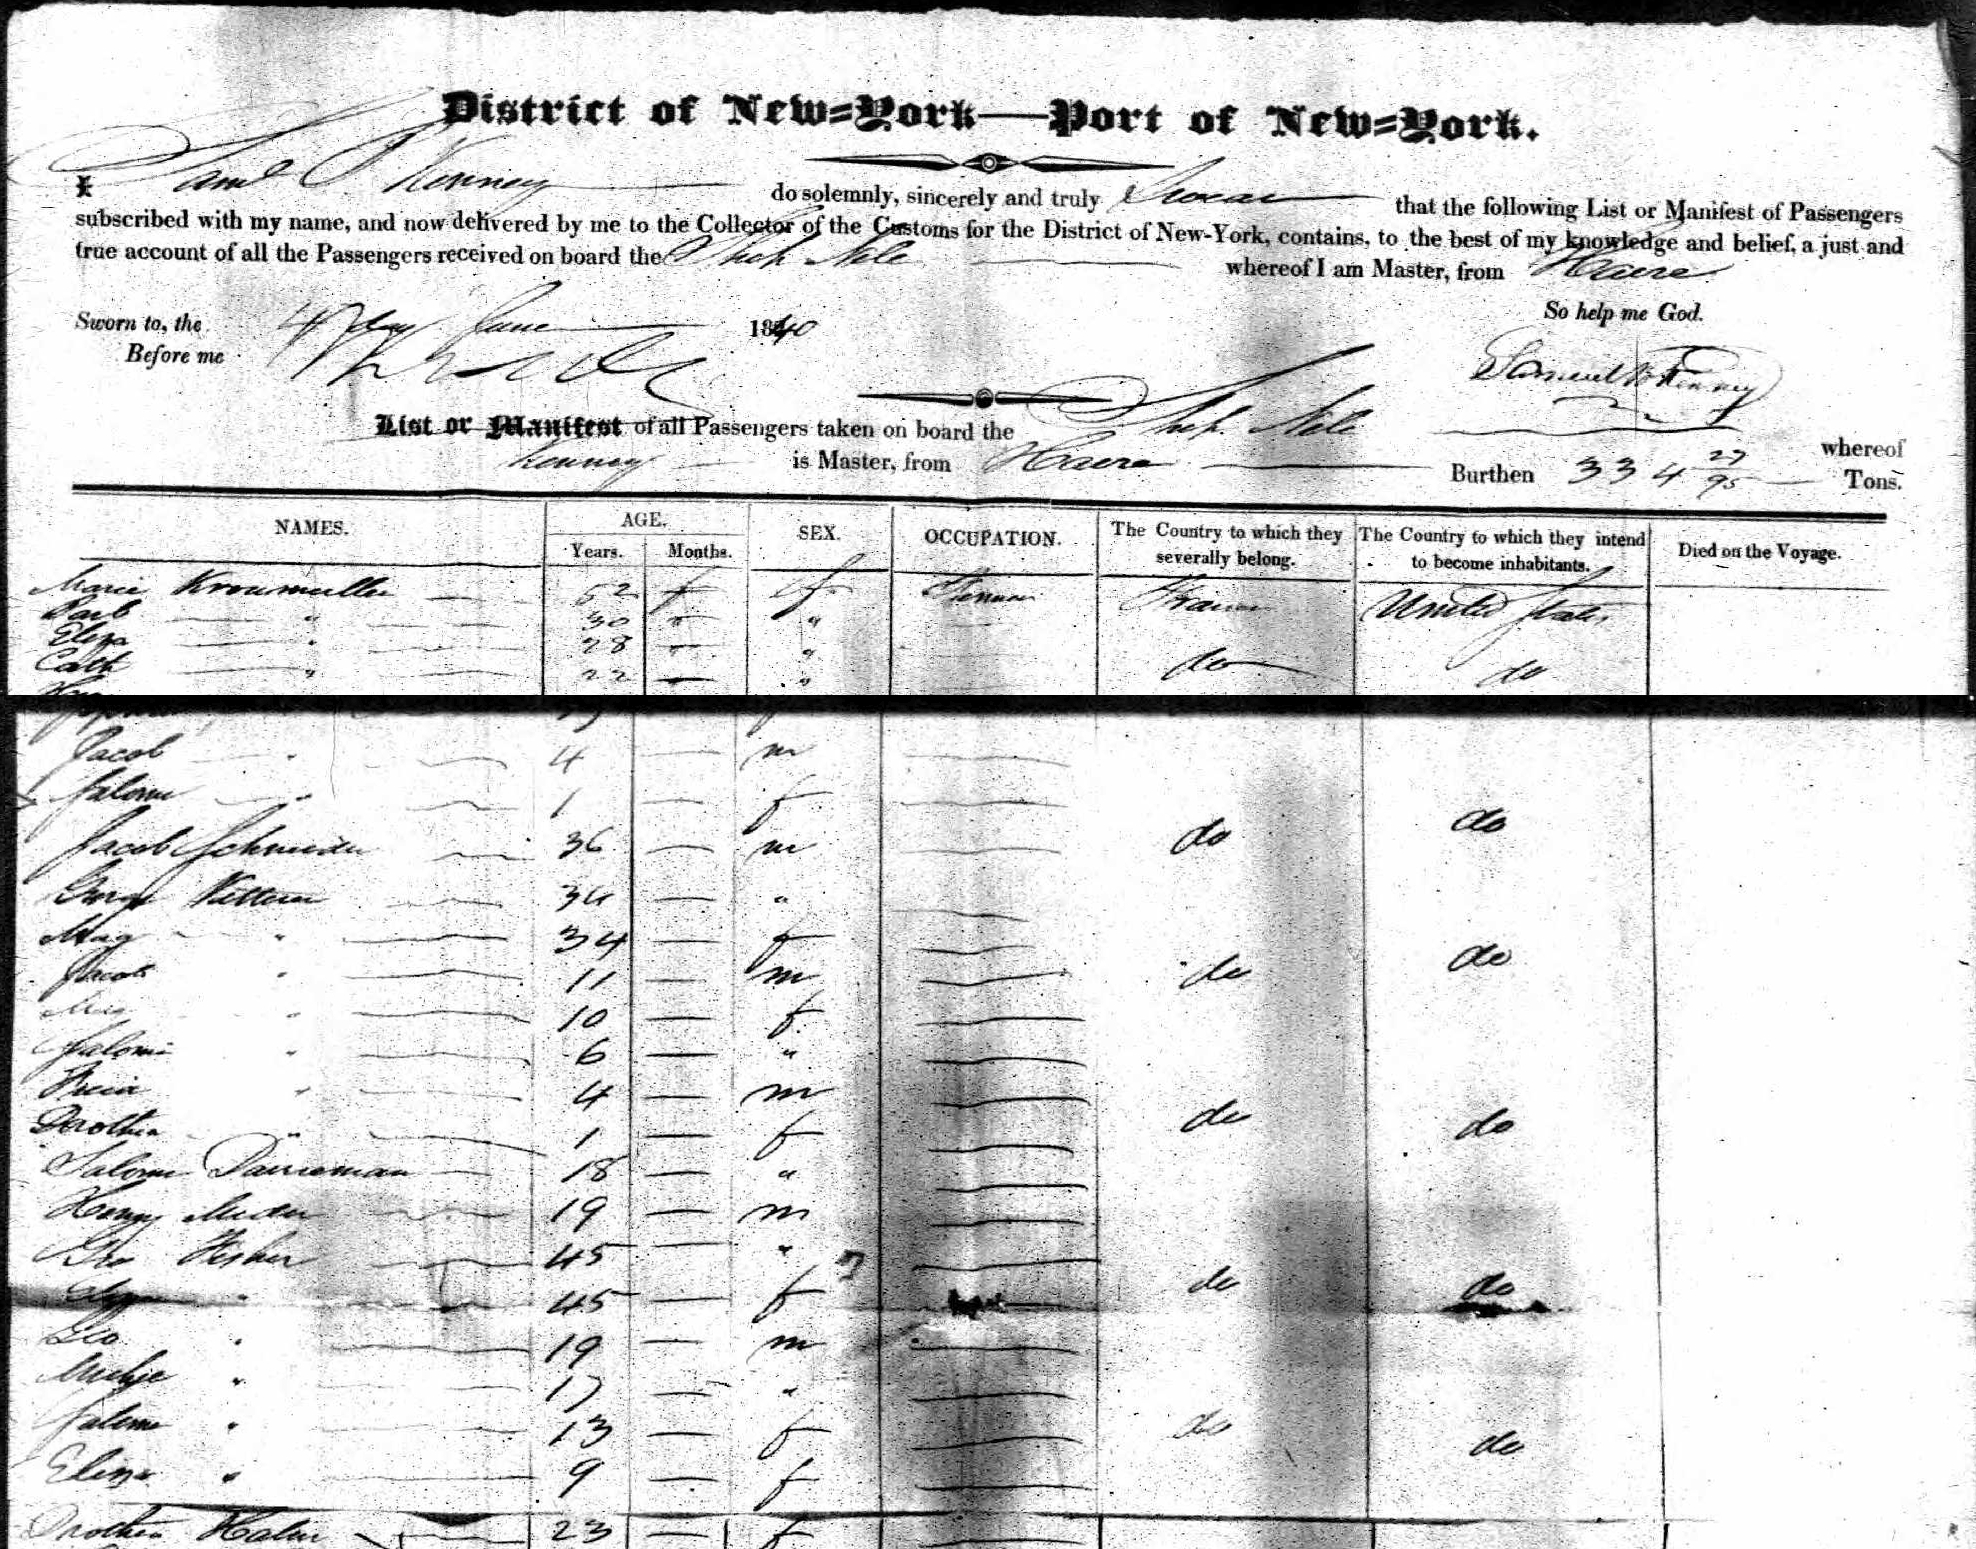 District of New=York—Port of New=York.
I Saml Kenney do solemnly, sincerely and truly Swear that the following List or Manifest of Passengers
subscribed with my name, and now delivered by me to the Collector of the Customs for the District of New-York, contains, to the best of my knowledge and belief, a just and
true account of all the Passengers received on board the Ship Nile whereof I am Master, from Havre
So help me God.
Sworn to, the 4 day June 1840
Before me
Samuel Kenney
List or Manifest of all Passengers taken on board the Ship Nile whereof
Kenney is Master, from Havre Burthen 334 27/95 Tons.
NAMES. AGE. SEX. OCCUPATION. The Country to which they severally belong. The Country to which they intend to become inhabitants. Died on the Voyage.
Years. Months.
Marie 52 f France United States
Barb " 30 " "
Eliza " 28 " "
Cath " 22 — " do do
Jacob " 4 — m
Salome " 1 — f
Jacob Schneider 36 — m do do
George 34 — "
Mag " 34 — f
Jacob " 11 — m do do
Mag " 10 — f
Salome " 6 — "
" 4 — m
Dorothea " 1 — f do do
Salome Danieman 18 — "
Henry 19 — m
Geo Fisher 45 — "
" 45 — f do do
Geo " 19 — m
" 17 — "
Salome " 13 — f do do
Eliza " 9 — f
Dorothea Halm 23 — f